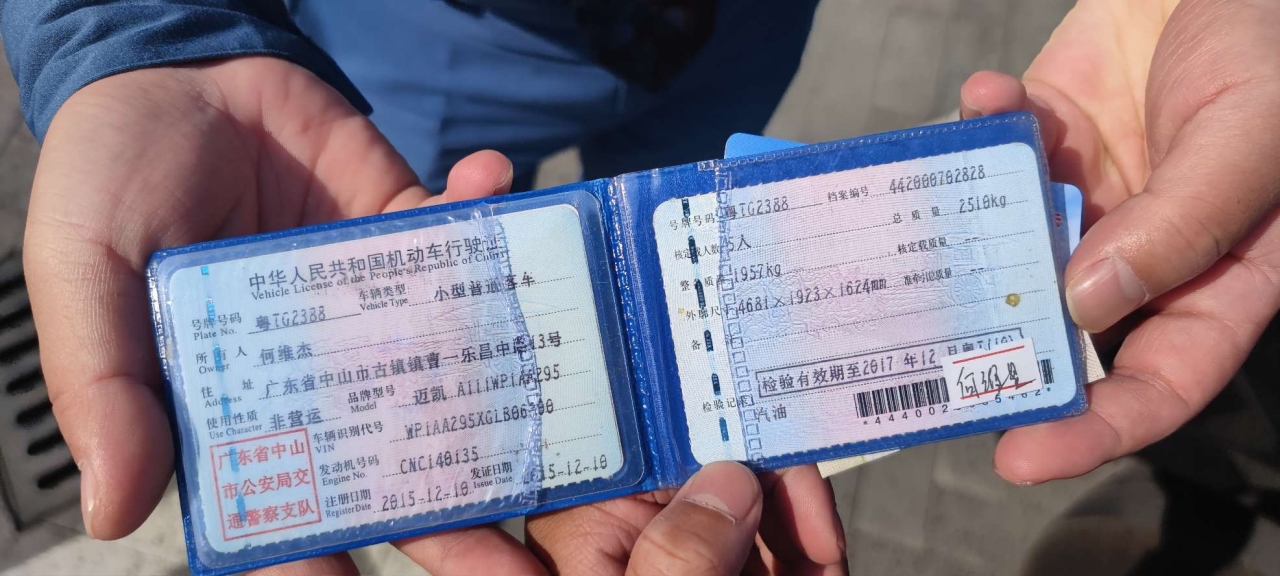 中华人民共和国机动车行驶证
Vehicle License of the People's Republic of China
号牌号码 粤TG2388 车辆类型 小型普通客车
Plate No. Vehicle Type
所有人 何维杰
Owner
住址 广东省中山市古镇镇曹一乐昌中路13号
Address
使用性质 非营运 品牌型号 迈凯
Use Character Model
广东省中山
市公安局交
通警察支队
车辆识别代号
VIN
发动机号码 CNC140135
Engine No.
注册日期 2015-12-10 发证日期 2015-12-10
Register Date Issue Date
号牌号码 粤TG2388 档案编号 442000702828
核定载人数 5人 总质量 2510kg
整备质量 1957kg 核定载质量 --
外廓尺寸 4681×1923×1624mm 准牵引总质量 --
备
检验有效期至2017年12月
检验记录
汽油